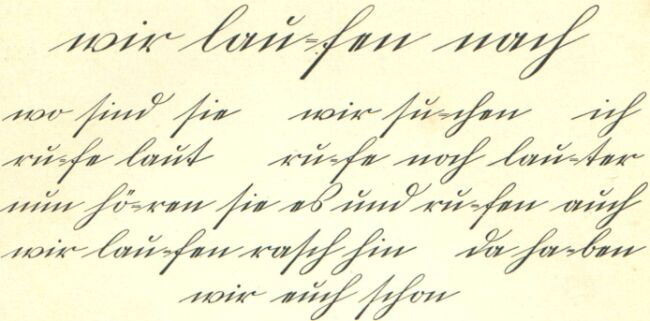 wir lau=fen nach
wo sind sie wir su=chen ich
ru=fe laut ru=fe noch lau=ter
nun hö=ren sie es und ru=fen auch
wir lau=fen rasch hin da ha=ben
wir euch schon